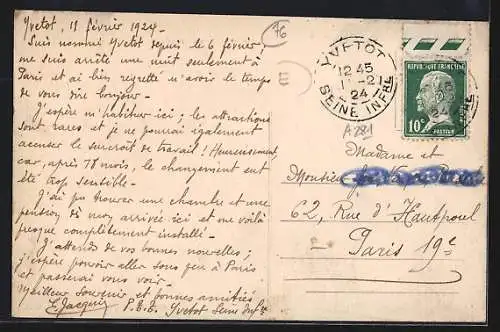 Yvetot, 11 février 1924.
Suis nommé Yvetot depuis le 6 février,
me suis arrêté une nuit seulement à
Paris et ai bien regretté n'avoir le temps
de vous dire bonjour.
J'espère m'habituer ici ; les attractions
sont rares et je ne pourrai également
accuser le surcroît de travail ! Heureusement,
car, après 78 mois, le changement eut
été trop sensible.
J'ai pu trouver une chambre et une
pension dès mon arrivée ici et me voilà
presque complètement installé.
J'attends de vos bonnes nouvelles ;
j'espère pouvoir aller sous peu à Paris
et passerai vous voir.
Meilleur souvenir et bonnes amitiés
E. Jacquin P.T.T. Yvetot Seine Infre
76
E
YVETOT
12 45
11 -2
24
SEINE INFRE
REPUBLIQUE FRANÇAISE
10c
PASTEUR
A281
Madame et
Monsieur
62, Rue d'Hautpoul
Paris 19e